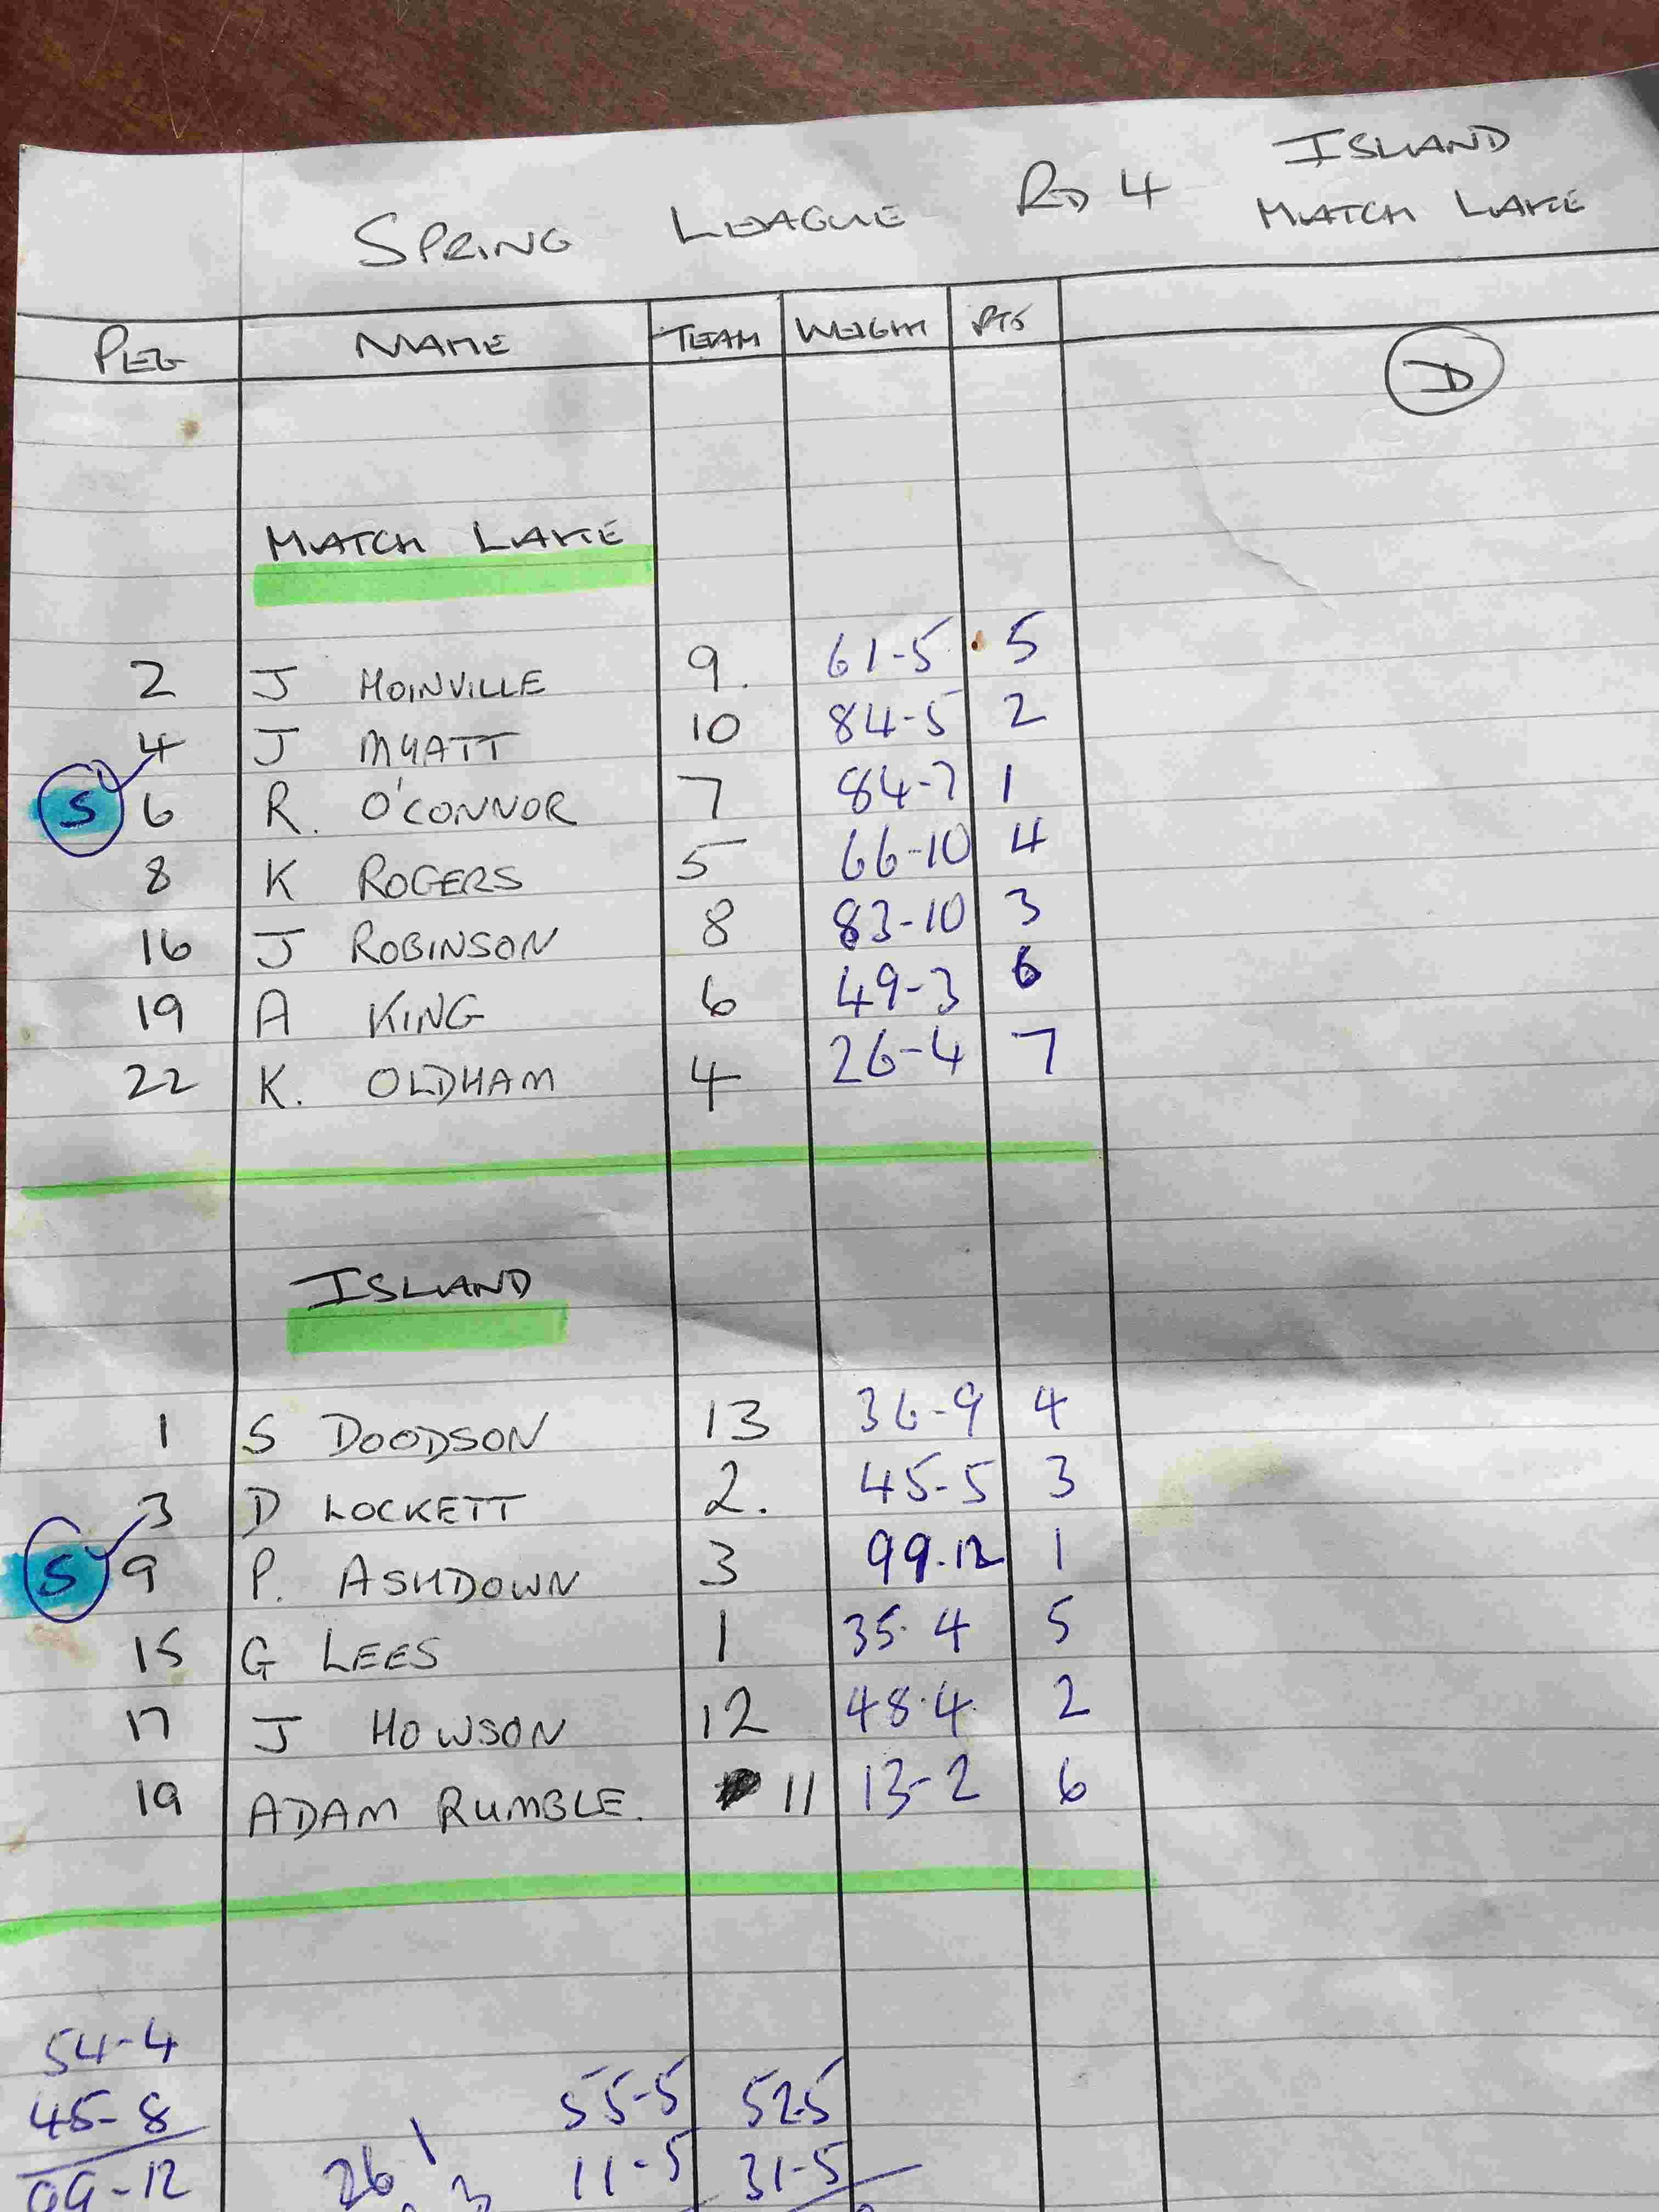 SPRING LEAGUE RD 4 ISLAND
MATCH LAKE
PEG NAME TEAM WEIGHT PTS
D
MATCH LAKE
2 J HOINVILLE 9. 61-5 5
4 J MYATT 10 84-5 2
S 6 R. O'CONNOR 7 84-7 1
8 K ROGERS 5 66-10 4
16 J ROBINSON 8 83-10 3
19 A KING 6 49-3 6
22 K. OLDHAM 4 26-4 7
ISLAND
1 S DOODSON 13 36-9 4
3 D LOCKETT 2. 45-5 3
S 9 P. ASHDOWN 3 99.12 1
15 G LEES 1 35.4 5
17 J HOWSON 12 48.4 2
19 ADAM RUMBLE. 11 13-2 6
54-4
45-8 55-5 52.5
99-12 26 1 11-5 31-5
3